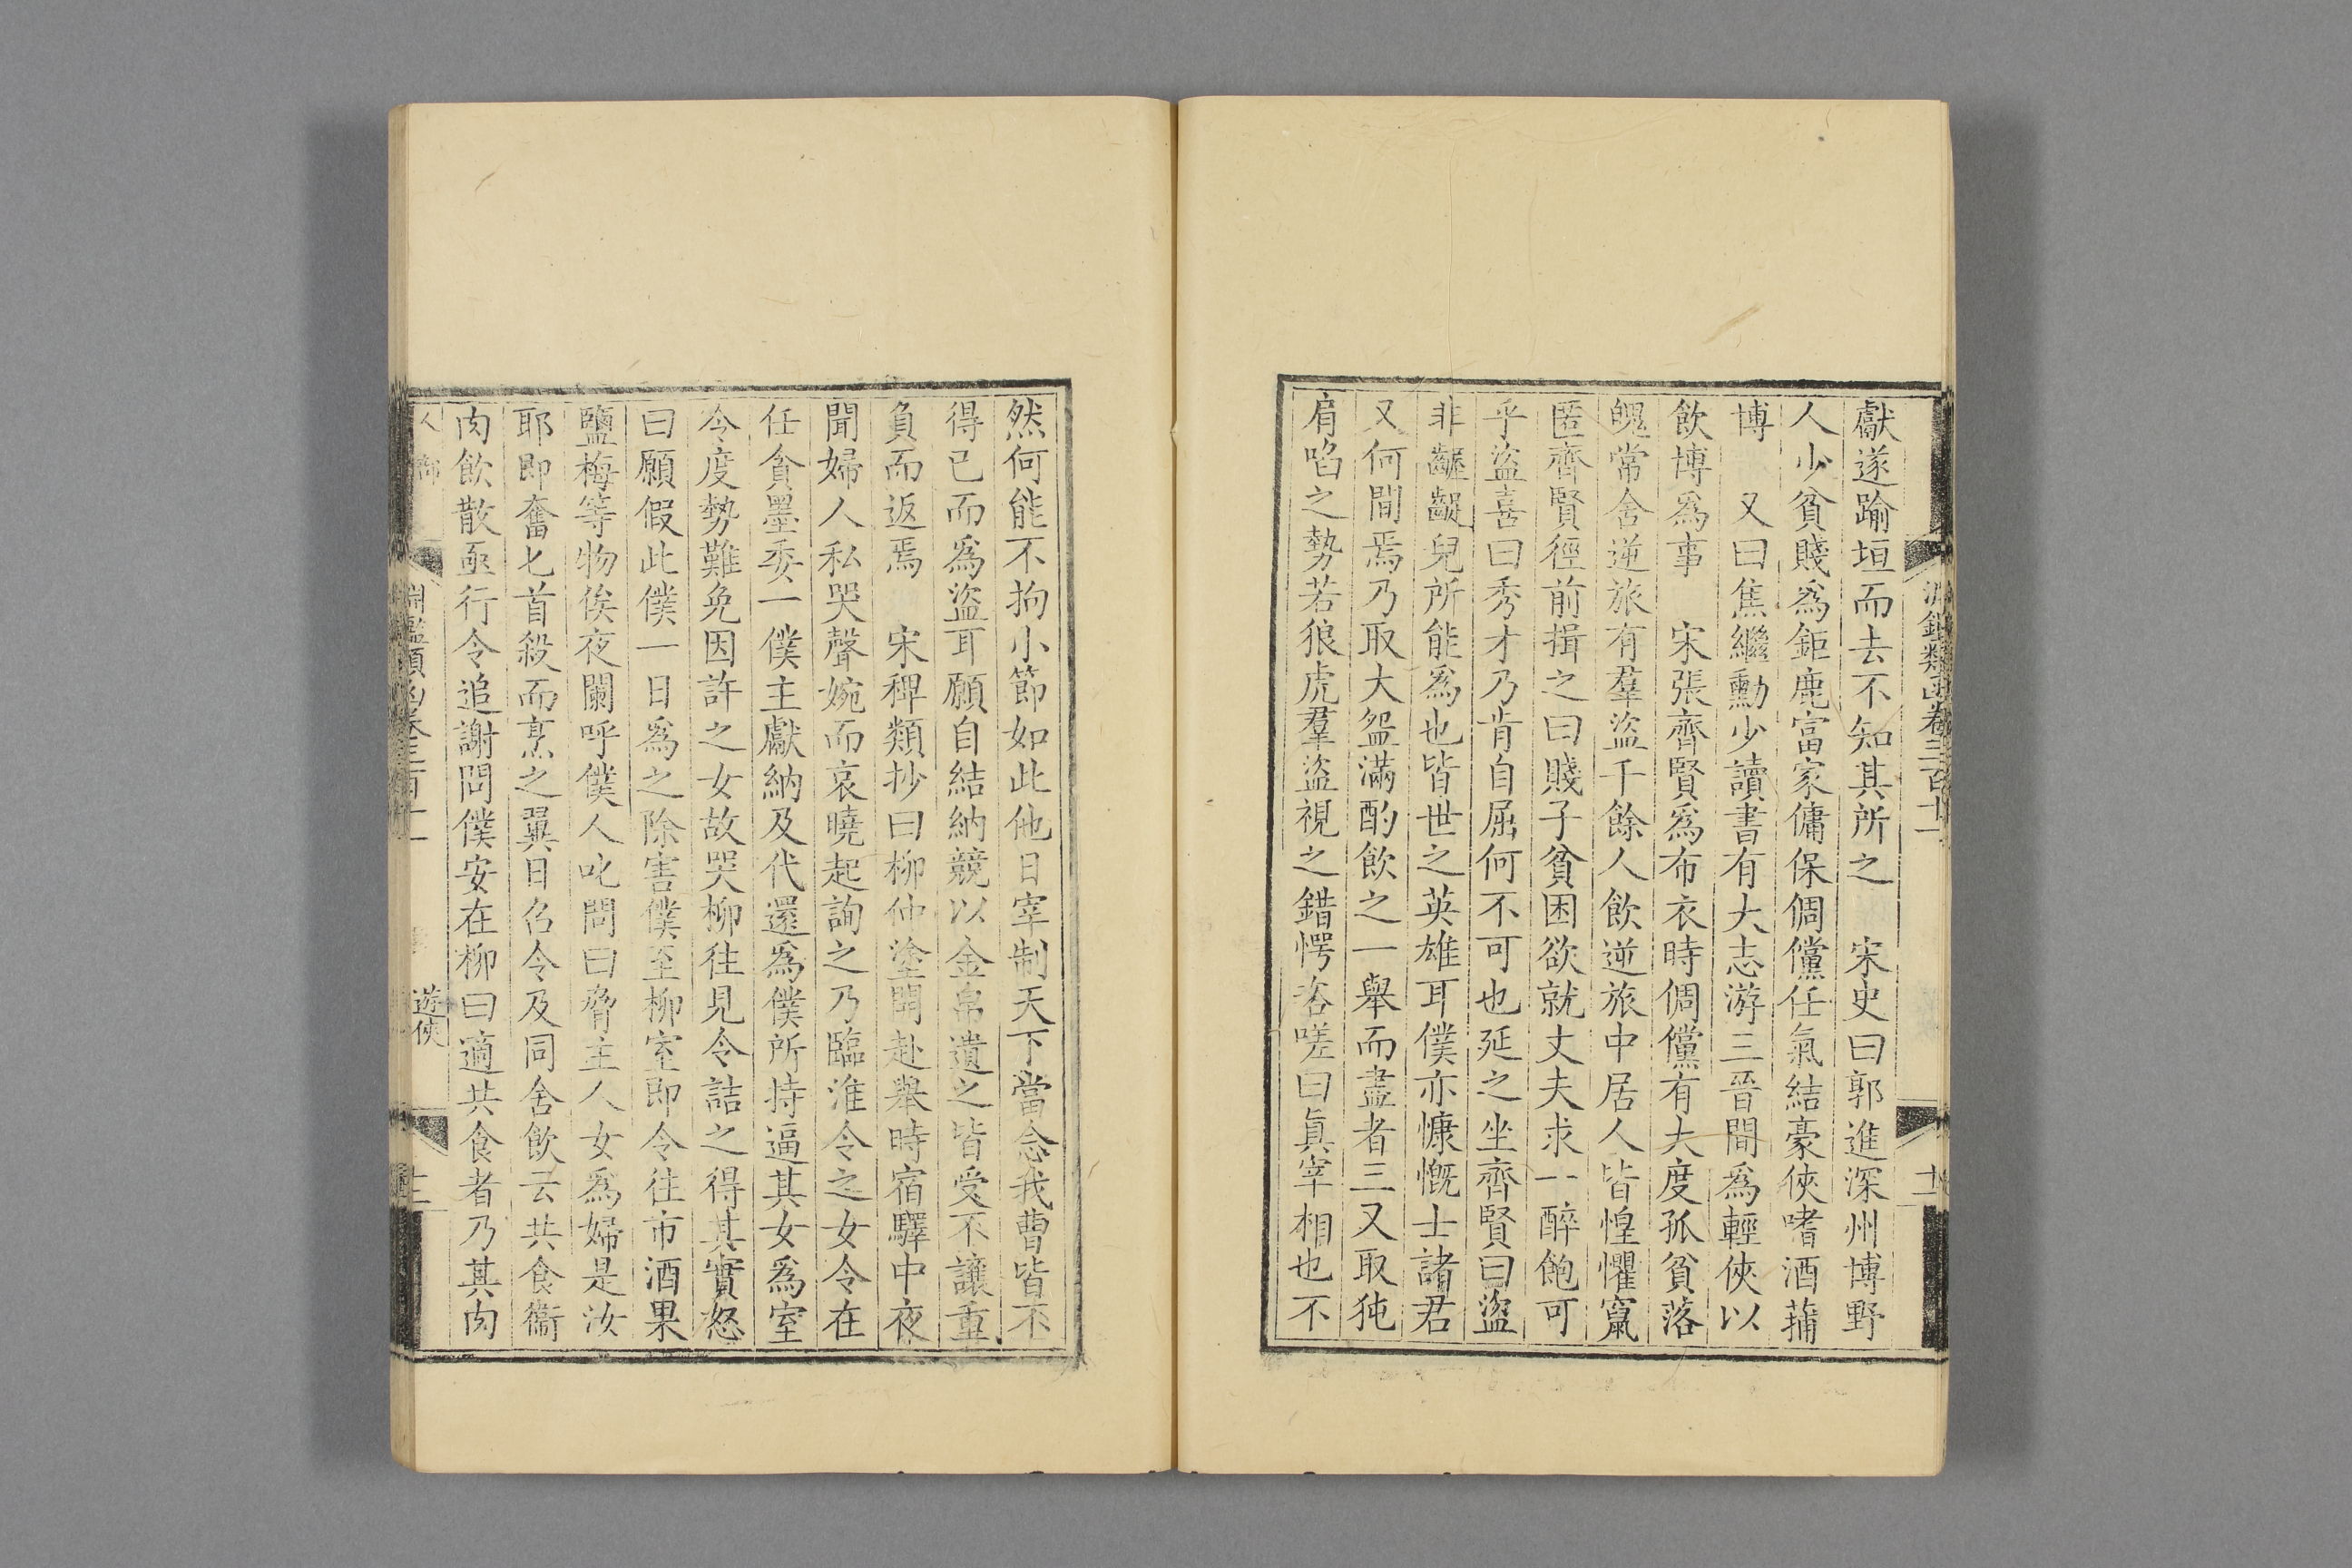 獻遂踰垣而去不知其所之　宋史曰郭進深州博野
人少貧賤爲鉅鹿富家傭保倜儻任氣結豪俠嗜酒蒱
博　又曰焦繼勳少讀書有大志游三晉間爲輕俠以
飲博爲事　宋張齊賢爲布衣時倜儻有大度孤貧落
魄常舍逆旅有羣盜千餘人飲逆旅中居人皆惶懼竄
匿齊賢徑前揖之曰賤子貧困欲就丈夫求一醉飽可
乎盜喜曰秀才乃肯自屈何不可也延之坐齊賢曰盜
非齷齪兒所能爲也皆世之英雄耳僕亦慷慨士諸君
又何間焉乃取大盌滿酌飲之一舉而盡者三又取㹠
肩啗之勢若狼虎羣盜視之錯愕咨嗟曰眞宰相也不
然何能不拘小節如此他日宰制天下當念我曹皆不
得已而爲盜耳願自結納競以金帛遺之皆受不讓重
負而返焉　宋稗類抄曰柳仲塗開赴舉時宿驛中夜
聞婦人私哭聲婉而哀曉起詢之乃臨淮令之女令在
任貪墨委一僕主獻納及代還爲僕所持逼其女爲室
令度勢難免因許之女故哭柳往見令詰之得其實怒
曰願假此僕一日爲之除害僕至柳室即令往市酒果
鹽梅等物俟夜闌呼僕人叱問曰脅主人女爲婦是汝
耶即奮匕首殺而烹之翼日召令及同舍飲云共食衞
肉飲散亟行令追謝問僕安在柳曰適共食者乃其肉
淵鑑類函卷三百十一
遊俠